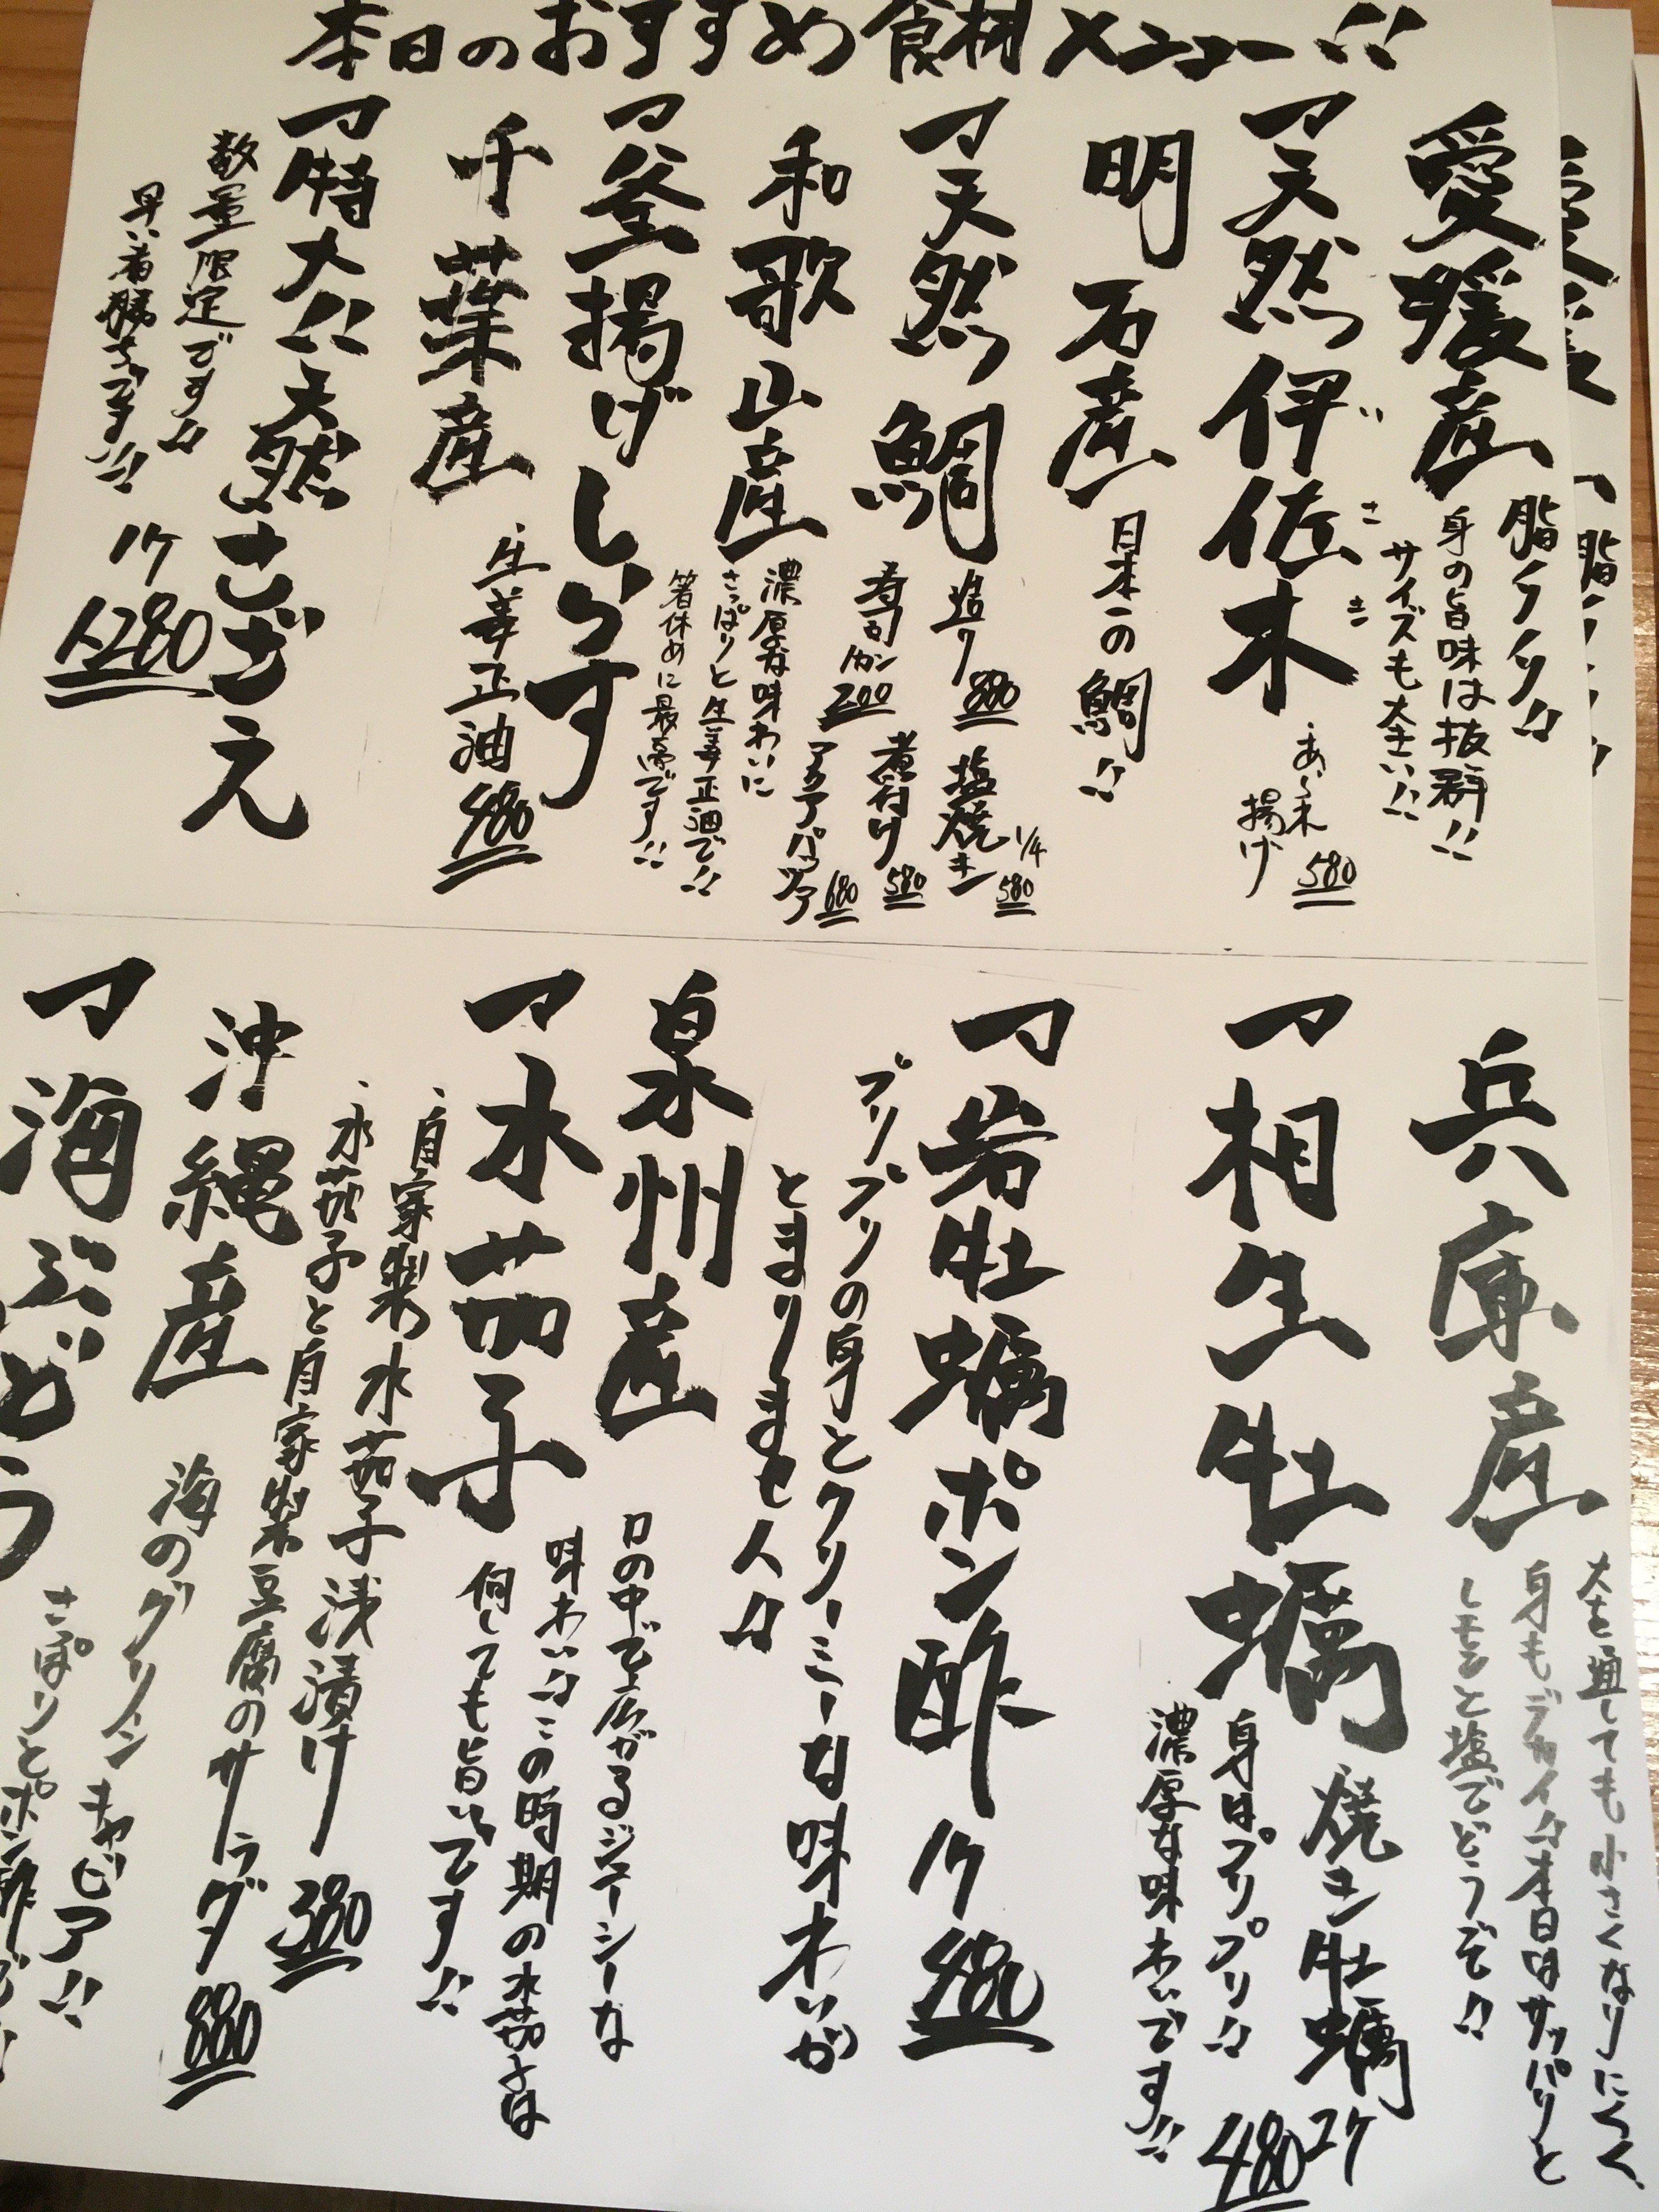 本日のおすすめ食材メニュー!!
愛媛産
脂ノリノリ!!
身の旨味は抜群!!
サイズも大きい!!
天然伊佐木
いさき
あられ揚げ 580
明石産
日本一の鯛!!
天然鯛
造り 880
塩焼き 1/4 580
寿司 1カン 200
煮付け 580
アクアパッツァ 680
和歌山産
濃厚な味わいに
さっぱりと生姜正油で!!
箸休めに最高です!!
釜揚げしらす
千葉産
生姜正油 480
特大!!天然さざえ
数量限定です!!
早い者勝ちです!!
1ケ 1280
兵庫産
火を通しても小さくなりにくく、
身もデカイ!!本日はサッパリと
レモンと塩でどうぞ!!
相生牡蠣
焼き牡蠣 2ケ 480
身はプリプリ!!
濃厚な味わいです!!
岩牡蠣ポン酢 1ケ 480
プリプリの身とクリーミーな味わいが
とまりません!!
泉州産
口の中で広がるジューシーな
味わい!!この時期の水茄子は
何しても旨いです!!
水茄子
・自家製水茄子浅漬け 380
・水茄子と自家製豆腐のサラダ 880
沖縄産
海のグリーンキャビア!!
さっぱりとポン酢で
海ぶどう